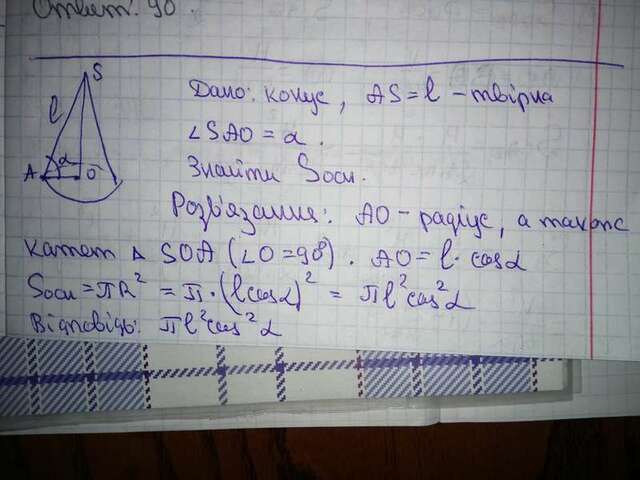 Ответ: 90.
S
l
α
A
O
Дано: конус, AS = l - твірна
∠SAO = α.
Знайти Sосн.
Розв'язання: AO - радіус, а також
катет △ SOA (∠O = 90°). AO = l · cosα
Sосн = πR² = π · (l cosα)² = πl²cos²α
Відповідь: πl²cos²α